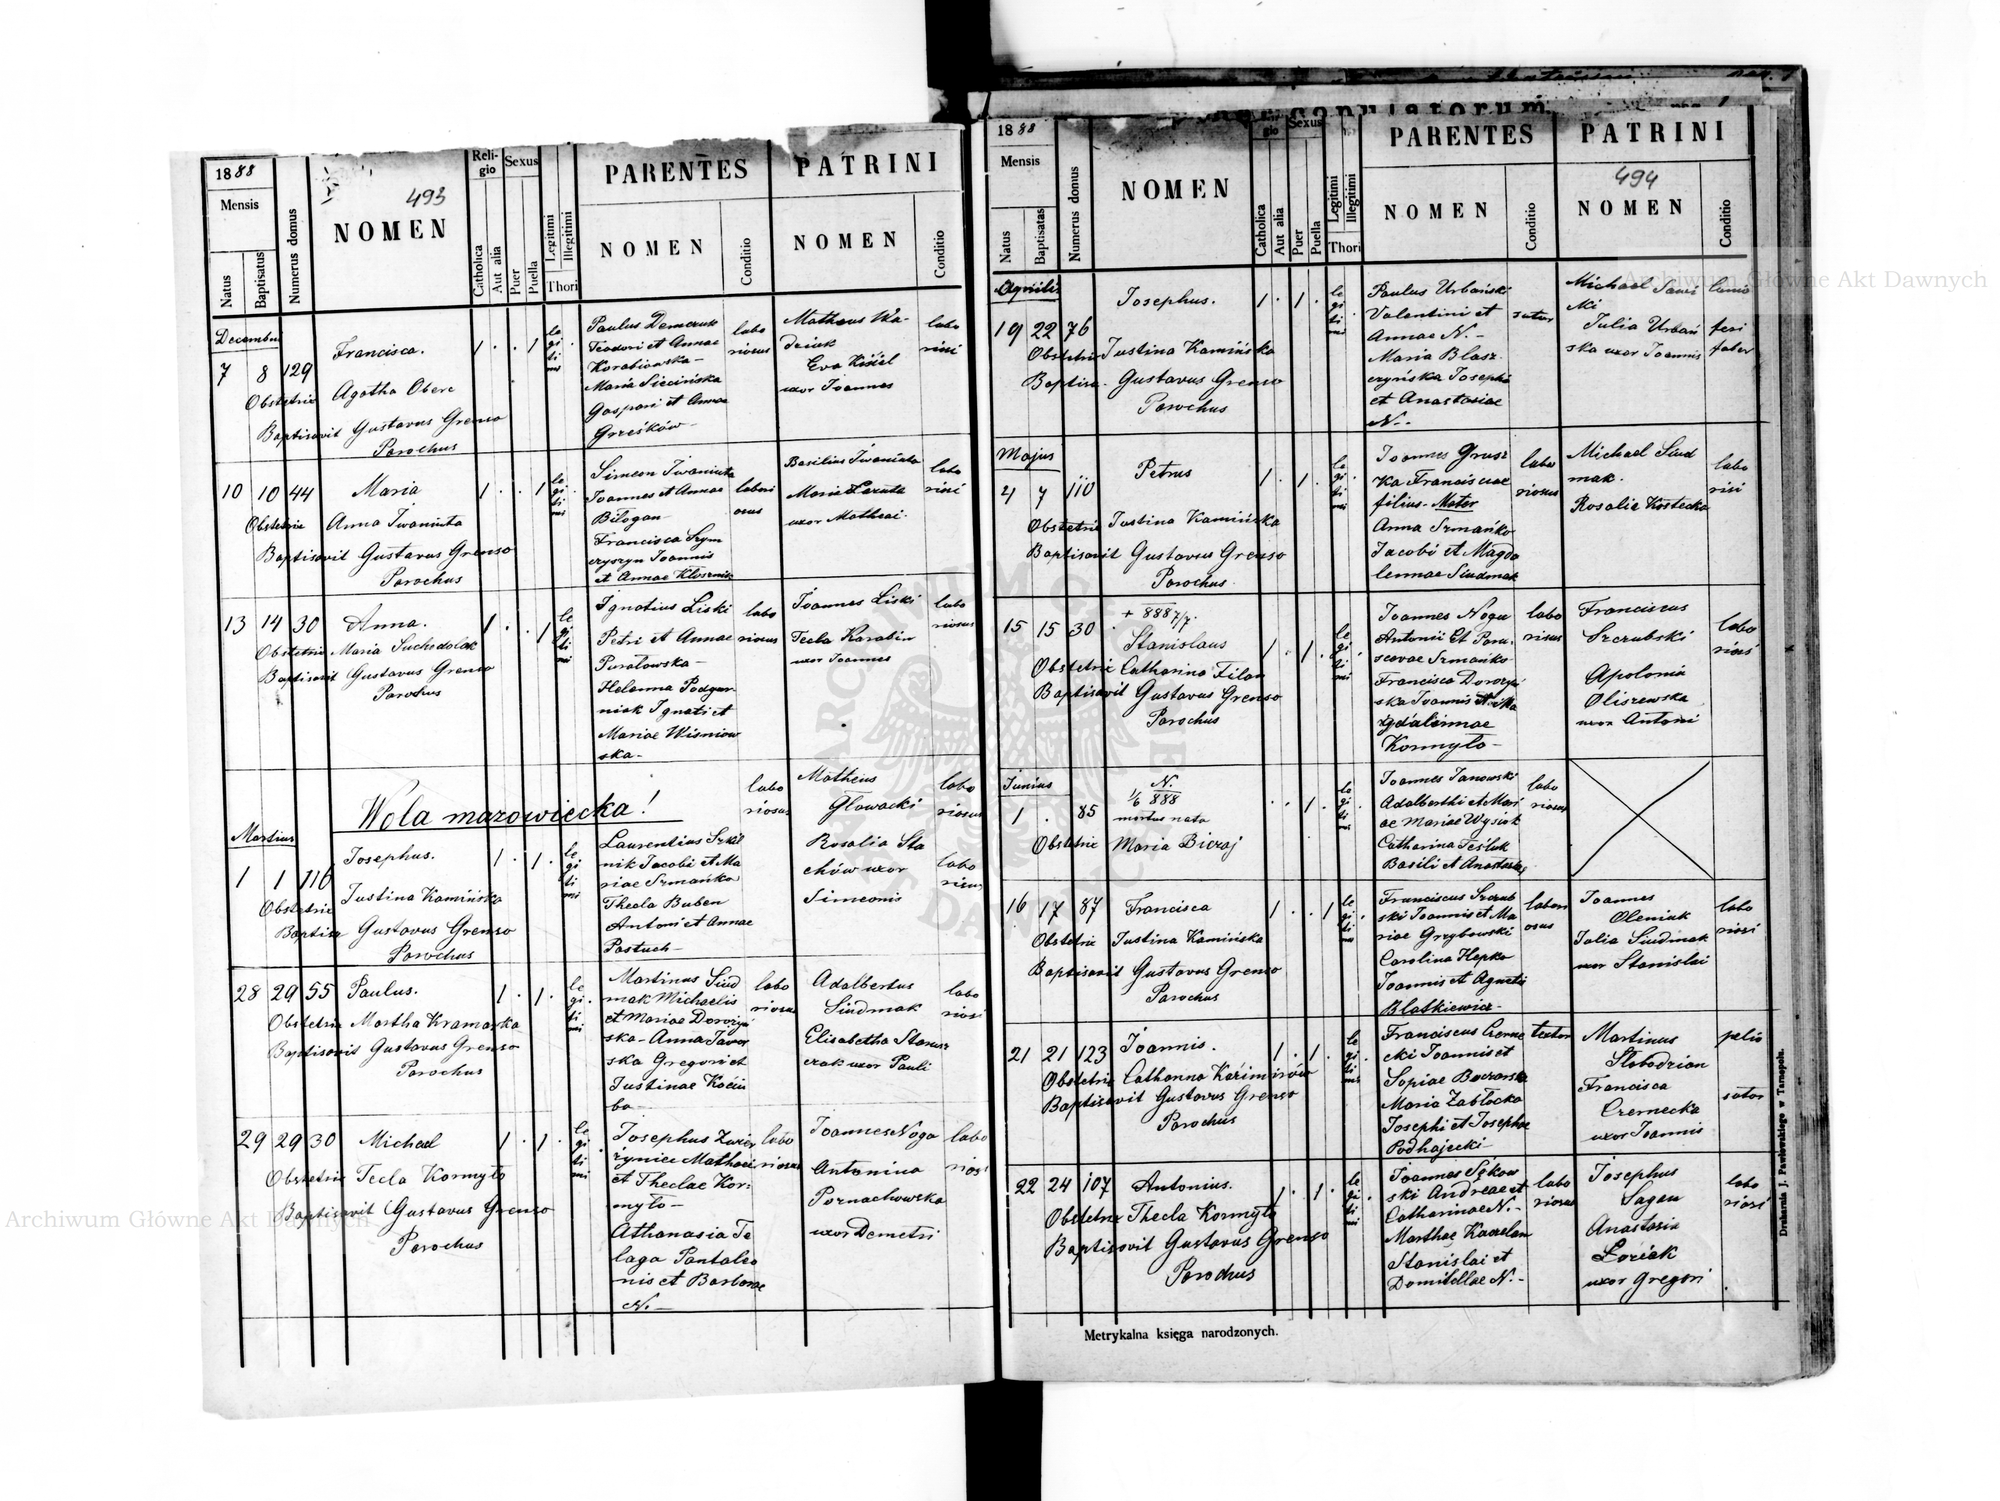 1888
493
Mensis
Natus
Baptisatus
Numerus domus
NOMEN
Religio
Catholica
Aut alia
Sexus
Puer
Puella
Legitimi
Illegitimi
Thori
PARENTES
NOMEN
Conditio
PATRINI
NOMEN
Conditio
Decembri
7 8 129
Francisca.
Obstetrix Agatha Oberc
Baptisavit Gustavus Grenso
Parochus
legitimi
Paulus Demczuk
Teodori et Annae
Korabiowska-
Maria Siecińska
Gaspari et Annae
Grześków-
laboriosus
Matheus Wa-
dziuk
Eva Kisiel
uxor Joannes
laboriosi
10 10 44
Maria
Obstetrix Anna Iwaniuta
Baptisavit Gustavus Grenso
Parochus
legitimi
Simeon Iwaniuta
Joannes et Annae
Bilogan
Francisca Szym
czyszyn Joannis
et Annae
laboriosus
Basilius Iwaniuta
Maria
uxor Matheai.
laboriosi
13 14 30
Anna.
Obstetrix Maria Suchodolak
Baptisavit Gustavus Grenso
Parochus
legitimi
Ignatius Liski
Petri et Annae
Puratowska-
Helenna Podgur
niak Ignati et
Mariae Wisniow
ska-
laboriosus
Joannes Liski
Tecla Karabin
uxor Joannes
laboriosus
Wola mazowiecka!
Martius
1 1 116
Josephus.
Obstetrix Justina Kamińska
Baptisa Gustavus Grenso
Parochus
legitimi
Laurentius Szkil
nik Jacobi et Ma
riae Szmańko
Thecla Buben
Antoni et Annae
Pastuch-
laboriosus
Matheus
Głowacki
Rosalia Sta
chów uxor
Simeonis
laboriosus
laboriosus
28 29 55
Paulus.
Obstetrix Martha Kramarka
Baptisavit Gustavus Grenso
Parochus
legitimi
Martinus Siud
mak Michaelis
et Mariae Dorożyń
ska- Anna Jawor
ska Gregori et
Justinae Kociu
ba-
laboriosus
Adalbertus
Siudmak
Elisabetha Starusz
czak uxor Pauli
laboriosi
29 29 30
Michael
Obstetrix Tecla Kormyło
Baptisavit Gustavus Grenso
Parochus
legitimi
Josephus Zwier
zyniec Mathaei
et Theclae Kor-
myło-
Athanasia Te
laga Pantaleo
nis et Barbarae
N.-
laboriosus
Joannes Noga
Antonina
Poznachowska
uxor Demetri
laboriosi
copulatorum
1888
494
Mensis
Natus
Baptisatas
Numerus domus
NOMEN
Religio
Catholica
Aut alia
Sexus
Puer
Puella
Legitimi
Illegitimi
Thori
PARENTES
NOMEN
Conditio
PATRINI
NOMEN
Conditio
Aprilis
19 22 76
Josephus.
Obstetrix Justina Kamińska
Baptisa. Gustavus Grenso
Parochus
legitimi
Paulus Urbański
Valentini et
Annae N.-
Maria Blasz
czyńska Josephi
et Anastasiae
N..
sutor
Michael Sawi
cki
Julia Urbań
ska uxor Joannis
lanio
feri
faber
Majus
7 110
Petrus
Obstetrix Justina Kamińska
Baptisavit Gustavus Grenso
Parochus
legitimi
Joannes Grusz
ka Franciscae
filius- Mater
Anna Szmańko
Jacobi et Magda
lennae Siudmak
laboriosus
Michael Siud
mak.
Rosalia Kostecka
laboriosi
15 15 30
+ 888 7/7.
Stanislaus
Obstetrix Catharina Filar
Baptisavit Gustavus Grenso
Parochus
legitimi
Joannes Noga
Antonii Et Para-
scevae Szmańko
Francisca Dorożyń
ska Joannis et Ma
gdalennae
Kormyło-
laboriosus
Franciscus
Szczubski
Apolonia
Oliszewska
uxor Antoni
laboriosi
Junius
1 . 85
N.
1/6 888
mortus nata
Obstetrix Maria Biczaj
legitimi
Joannes Janowski
Adalberthi et Mari
ae Mariae Wysiok
Catharina Teśluk
Basili et Anastasiae
laboriosus
16 17 87
Francisca
Obstetrix Justina Kamińska
Baptisavit Gustavus Grenso
Parochus
legitimi
Franciscus Szczub
ski Joannis et Ma
riae Grzybowski
Carolina Hepko
Joannis et Agnetis
Blatkiewicz-
laboriosus
Joannes
Oleniuk
Julia Siudmak
uxor Stanislai
laboriosi
21 21 123
Joannis.
Obstetrix Catharina Kazimirów
Baptisavit Gustavus Grenso
Parochus
legitimi
Franciscus Czerne
cki Joannis et
Sopiae Boczarska
Maria Zabłocka
Josephi et Josephae
Podhajecki-
textor
Martinus
Słobodzian
Francisca
Czernecka
uxor Joannis
pelio
sutor
22 24 107
Antonius.
Obstetrix Thecla Kormyło
Baptisavit Gustavus Grenso
Parochus
legitimi
Joannes Sękow
ski Andreae et
Catharinae N.-
Marthae Kawelan
Stanislai et
Domitellae N.-
laboriosus
Josephus
Sagan
Anastasia
Łoziek
uxor Gregori
laboriosi
Metrykalna księga narodzonych.
Drukarnia J. Pawłowskiego w Tarnopolu.
Archiwum Główne Akt Dawnych
Archiwum Główne Akt Dawnych